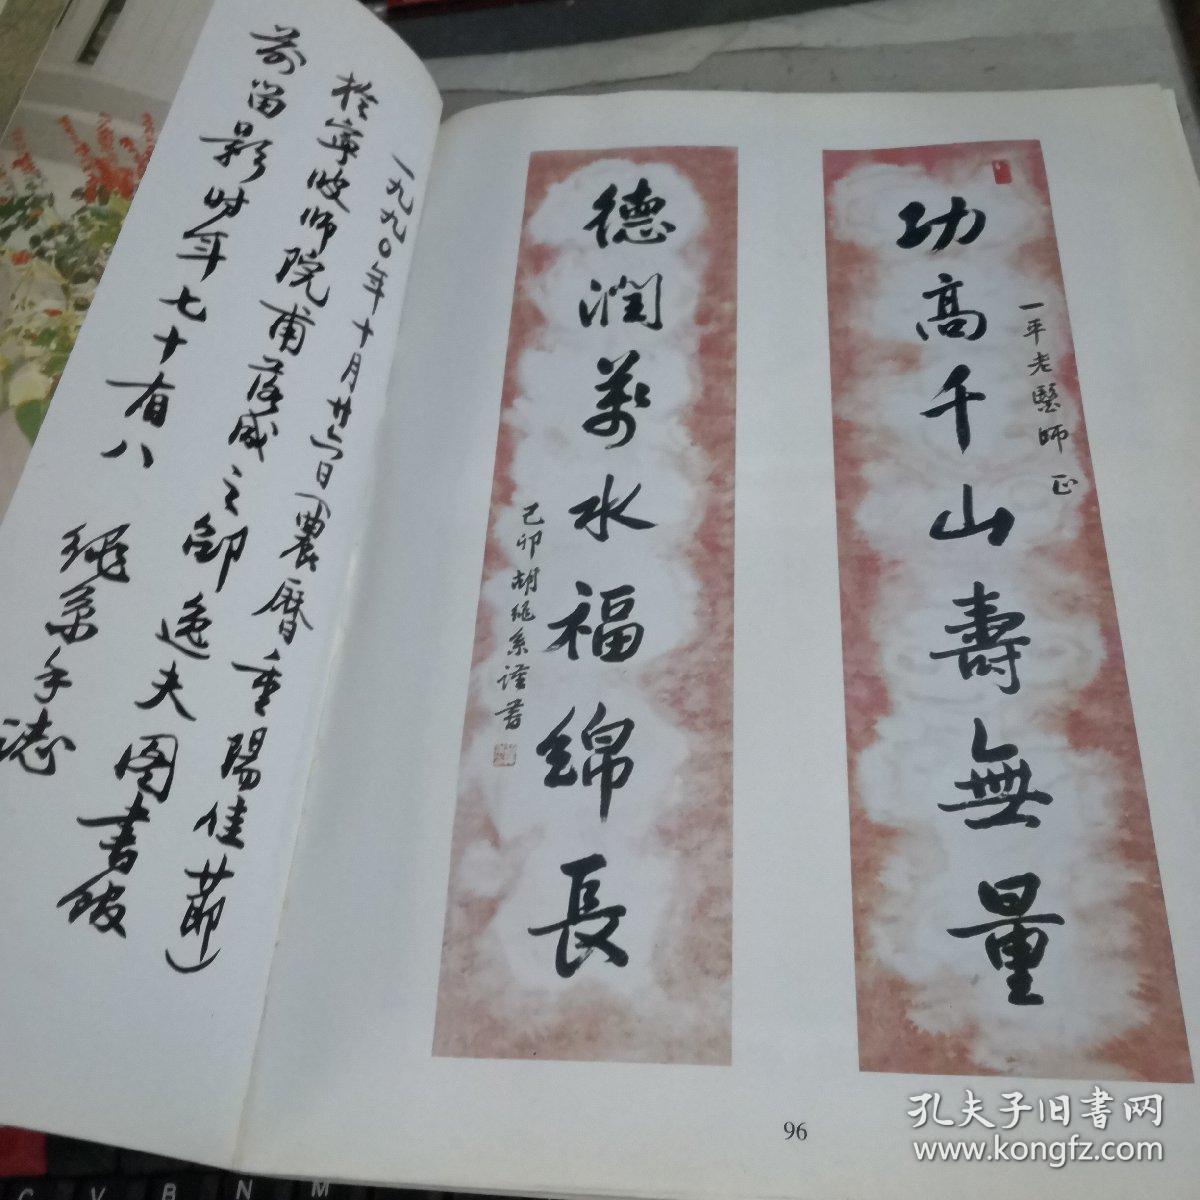 功高千山壽無量
一平老醫師 正
德潤萬水福綿長
己卯胡繩系謹書
一九九〇年十月廿六日(農曆重陽佳節)
於寧波師院甫落成之邵逸夫图書館
前留影时年七十有八
繩系手誌
96
孔夫子旧書网
www.kongfz.com
C V B N M